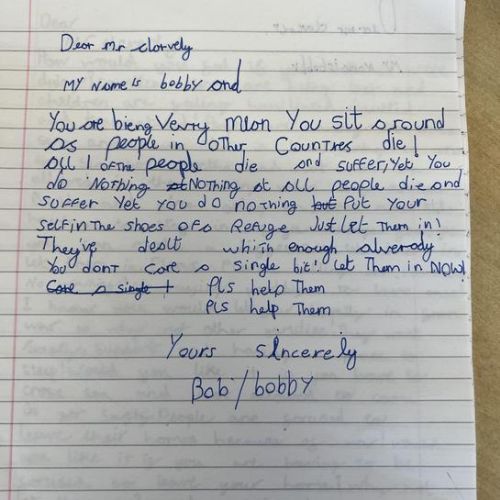 Dear mr clorvely
MY Name is bobby and
You are bieng Verry mean You sit around
as people in other Countres die!
all of the people die and suffer, yet You
do Nothing at NOTHING at all people die and
suffer Yet you do nothing but Put Your
self in the shoes of a Refuge Just Let Them in!
They've dealt which enough alverady
You dont Care a single bit! Let Them in NOW!
Care a single Pls help Them
Pls help Them
Yours sincerely
Bob/bobby